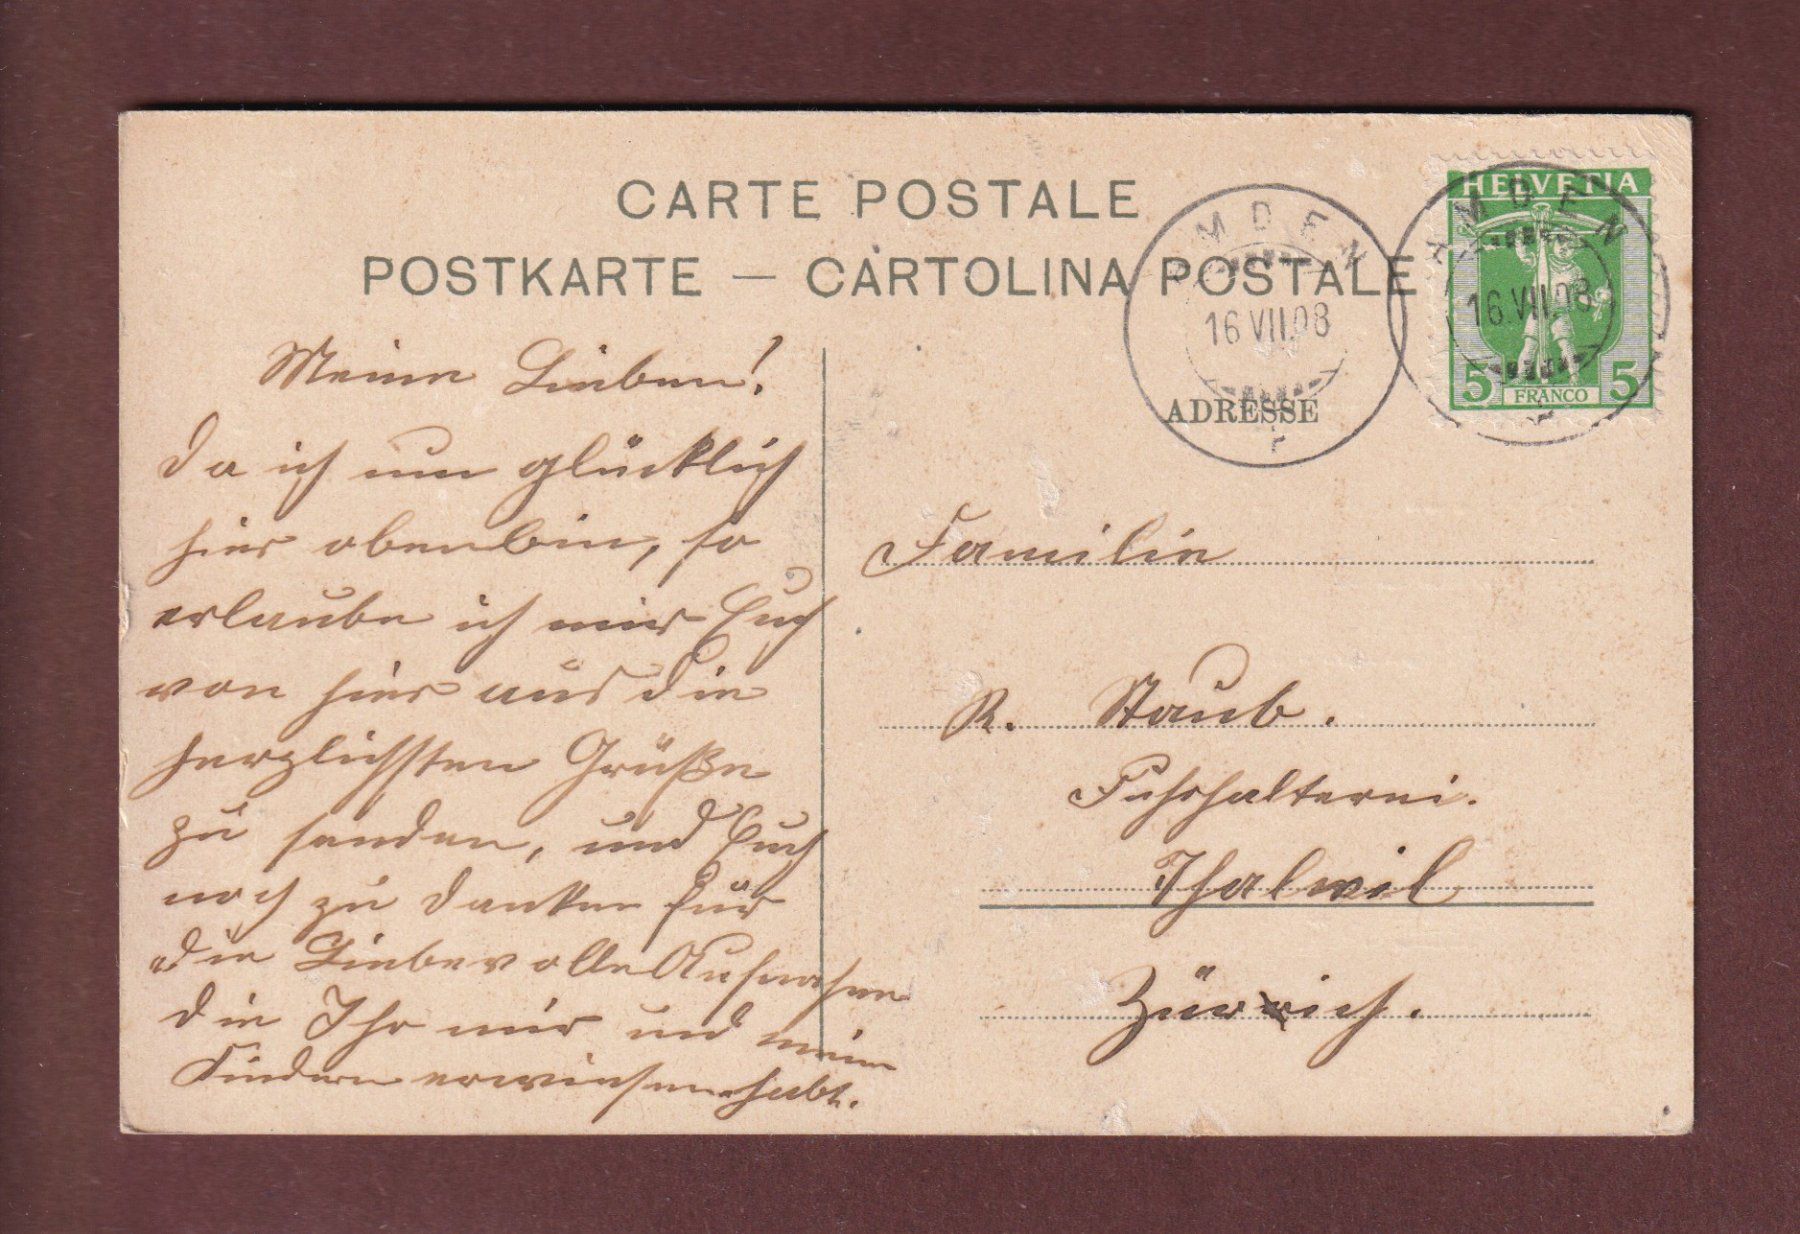 CARTE POSTALE
POSTKARTE — CARTOLINA POSTALE
AMDEN
16 VII.08
HELVETIA
AMDEN
16.VII.08
5 FRANCO 5
ADRESSE
Meine Lieben!
Da ich nun glücklich
hier oben bin, so
erlaube ich mir Euch
von hier aus die
herzlichsten Grüße
zu senden, und Euch
noch zu danken für
die Liebevolle Aufnahme
die Ihr mir und mein
Kindern erwiesen habt.
Familie
R. Staub.
Fuhrhalterei.
Thalwil
Zürich.